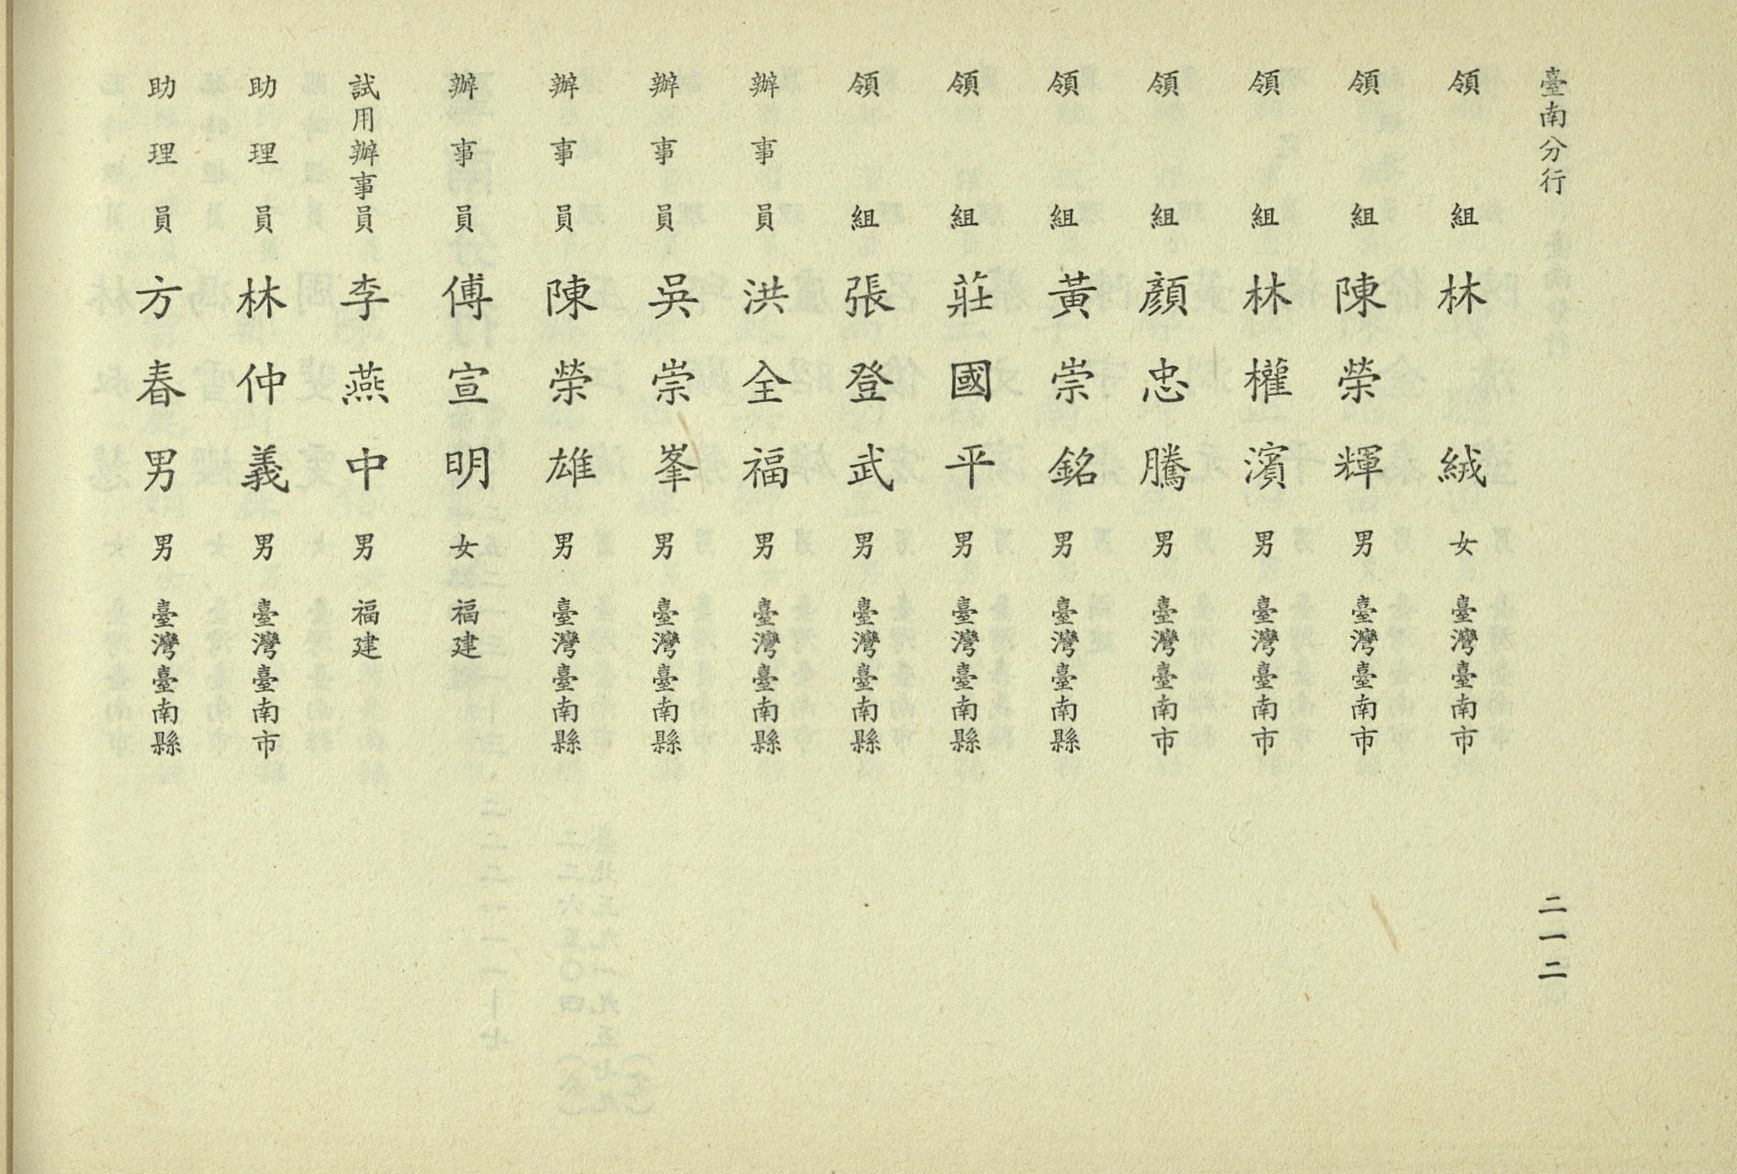 臺南分行 二一二
領組 林絨 女 臺灣臺南市
領組 陳榮輝 男 臺灣臺南市
領組 林權濱 男 臺灣臺南市
領組 顏忠騰 男 臺灣臺南市
領組 黃崇銘 男 臺灣臺南縣
領組 莊國平 男 臺灣臺南縣
領組 張登武 男 臺灣臺南縣
辦事員 洪全福 男 臺灣臺南縣
辦事員 吳崇峯 男 臺灣臺南縣
辦事員 陳榮雄 男 臺灣臺南縣
辦事員 傅宣明 女 福建
試用辦事員 李燕中 男 福建
助理員 林仲義 男 臺灣臺南市
助理員 方春男 男 臺灣臺南縣